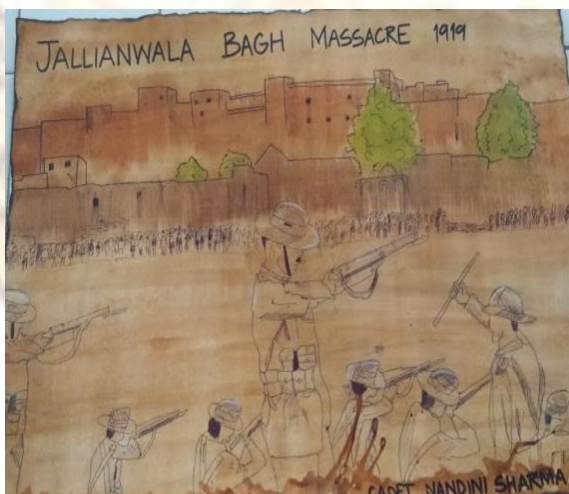 JALLIANWALA BAGH MASSACRE 1919
CADET NANDINI SHARMA